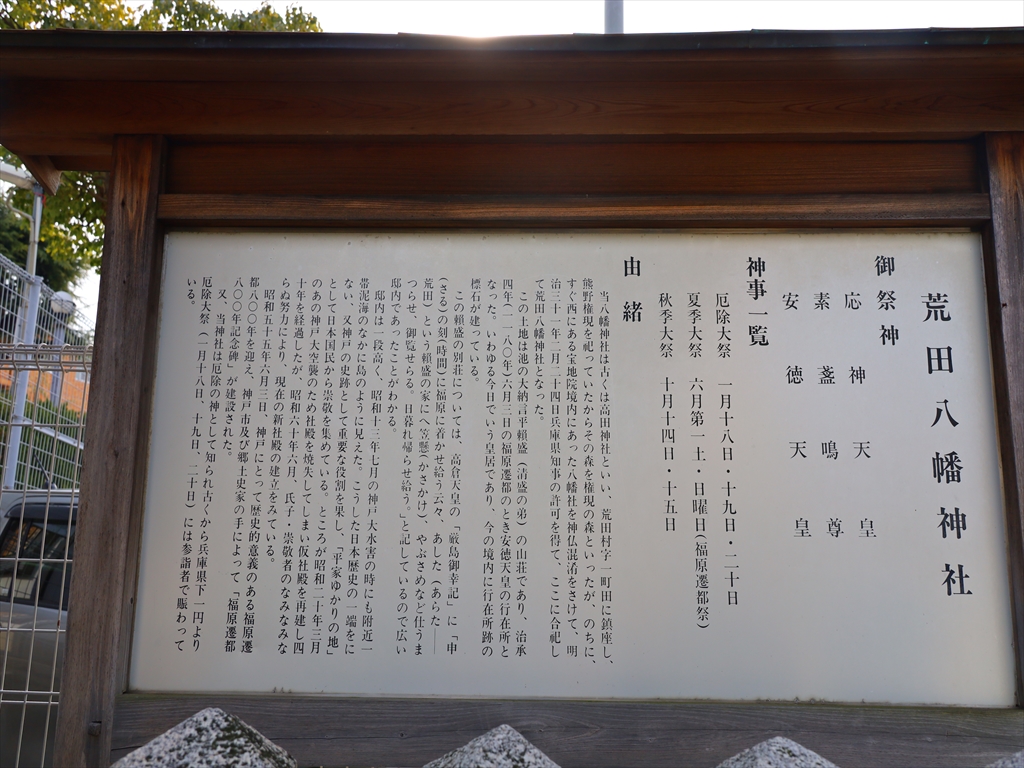 荒田八幡神社
御祭神
応神天皇
素盞鳴尊
安徳天皇
神事一覧
厄除大祭 一月十八日・十九日・二十日
夏季大祭 六月第一土・日曜日(福原遷都祭)
秋季大祭 十月十四日・十五日
由緒
当八幡神社は古くは高田神社といい、荒田村字一町田に鎮座し、
熊野権現を祀っていたからその森を権現の森といったが、のちに、
すぐ西にある宝地院境内にあった八幡社を神仏混淆をさけて、明
治三十一年二月二十四日兵庫県知事の許可を得て、ここに合祀し
て荒田八幡神社となった。
この土地は池の大納言平頼盛(清盛の弟)の山荘であり、治承
四年(一一八〇年)六月三日の福原遷都のとき安徳天皇の行在所と
なった。いわゆる今日でいう皇居であり、今の境内に行在所跡の
標石が建っている。
この頼盛の別荘については、高倉天皇の「厳島御幸記」に「申
(さる)の刻(時間)に福原に着かせ給う云々、あした(あらた――
荒田)という頼盛の家にへ笠懸(かさかけ)、やぶさめなど仕うま
つらせ、御覧せらる。日暮れ帰らせ給う。」と記しているので広い
邸内であったことがわかる。
邸内は一段高く、昭和十三年七月の神戸大水害の時にも附近一
帯泥海のなかに島のように見えた。こうした日本歴史の一端をに
ない、又神戸の史跡として重要な役割を果し、「平家ゆかりの地」
として日本国民から崇敬を集めている。ところが昭和二十年三月
のあの神戸大空襲のため社殿を焼失してしまい仮社殿を再建し四
十年を経過したが、昭和六十年六月、氏子・崇敬者のなみなみな
らぬ努力により、現在の新社殿の建立をみている。
昭和五十五年六月三日、神戸にとって歴史的意義のある福原遷
都八〇〇年を迎え、神戸市及び郷土史家の手によって「福原遷都
八〇〇年記念碑」が建設された。
又、当神社は厄除の神として知られ古くから兵庫県下一円より
厄除大祭(一月十八日、十九日、二十日)には参詣者で賑わって
いる。